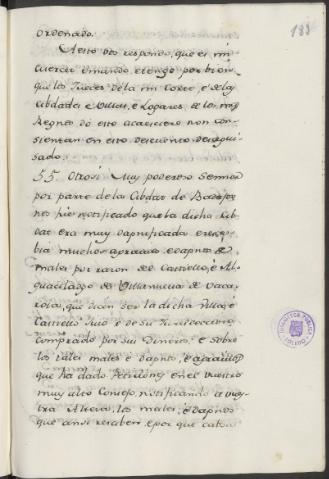 183
ordenado.
A esto vos respondo, que es mi
mercet e mando, e tengo por bien
que los Jueces de la mi Corte, e de las
Cibdades e Villas, e Logares, de los mis
Regnos do esto acaesciere non con-
sientan en esto
sado.
55. Otrosi Muy poderoso Sennor
por parte de la Cibdat de
nos fue notificado que la dicha Cib-
dat era muy dapnificada e resce-
bia muchos agravios e dapnos e
males por razon del Castiello, e Al-
guacilazgo de Villanueva de Vaca-
rota, que dicen ser la dicha Villa, e
Castiello suio e de su Jurediccion
comprado por sus Dineros: e sobre
los tales males e dapnos, e agravios
que ha dado Peticiones en el vuestro
muy alto Consejo, notificando a vues-
tra Alteza, los males, e dapnos
que ansi resciben, e por que
BIBLIOTECA PUBLICA
TOLEDO